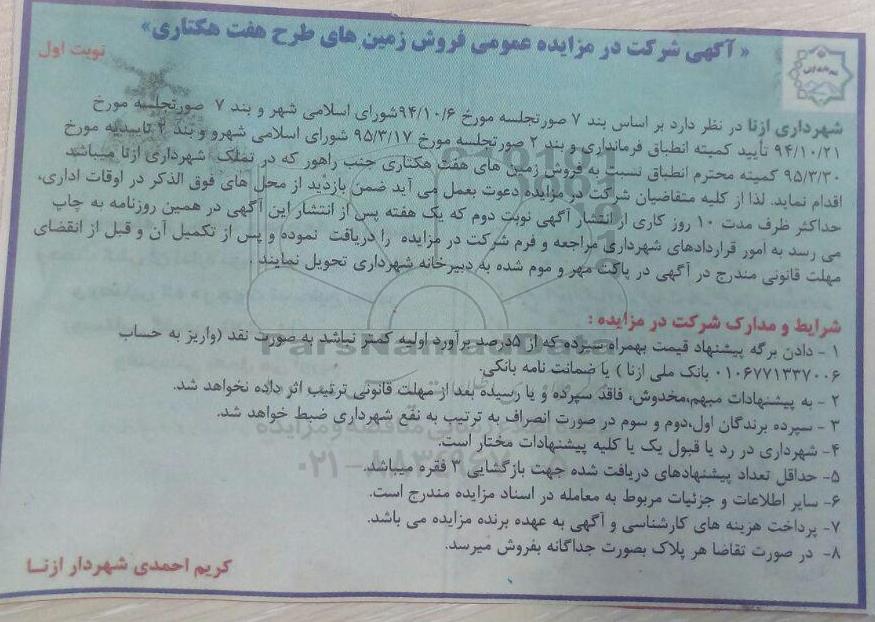 « آگهی شرکت در مزایده عمومی فروش زمین های طرح هفت هکتاری»
نوبت اول
شهرداری ازنا در نظر دارد بر اساس بند ۷ صورتجلسه مورخ ۹۴/۱۰/۶شورای اسلامی شهر و بند ۷ صورتجلسه مورخ
۹۴/۱۰/۲۱ تأیید کمیته انطباق فرمانداری و بند ۲ صورتجلسه مورخ ۹۵/۳/۱۷ شورای اسلامی شهرو و بند ۲ تاییدیه مورخ
۹۵/۳/۳۰ کمیته محترم انطباق نسبت به فروش زمین های هفت هکتاری جنب راهور که در تملک شهرداری ازنا میباشد
اقدام نماید. لذا از کلیه متقاضیان شرکت در مزایده دعوت بعمل می آید ضمن بازدید از محل های فوق الذکر در اوقات اداری،
حداکثر ظرف مدت ۱۰ روز کاری از انتشار آگهی نوبت دوم که یک هفته پس از انتشار این آگهی در همین روزنامه به چاپ
می رسد به امور قراردادهای شهرداری مراجعه و فرم شرکت در مزایده را دریافت نموده و پس از تکمیل آن و قبل از انقضای
مهلت قانونی مندرج در آگهی در پاکت مهر و موم شده به دبیرخانه شهرداری تحویل نمایند.
شرایط و مدارک شرکت در مزایده :
۱ - دادن برگه پیشنهاد قیمت بهمراه سپرده که از ۵درصد برآورد اولیه کمتر نباشد به صورت نقد (واریز به حساب
۰۱۰۶۷۷۱۳۳۷۰۰۶ بانک ملی ازنا ) یا ضمانت نامه بانکی.
۲ - به پیشنهادات مبهم،مخدوش، فاقد سپرده و یا رسیده بعد از مهلت قانونی ترتیب اثر داده نخواهد شد.
۳ - سپرده برندگان اول،دوم و سوم در صورت انصراف به ترتیب به نفع شهرداری ضبط خواهد شد.
۴- شهرداری در رد یا قبول یک یا کلیه پیشنهادات مختار است.
۵- حداقل تعداد پیشنهادهای دریافت شده جهت بازگشایی ۳ فقره میباشد.
۶- سایر اطلاعات و جزئیات مربوط به معامله در اسناد مزایده مندرج است.
۷- پرداخت هزینه های کارشناسی و آگهی به عهده برنده مزایده می باشد.
۸- در صورت تقاضا هر پلاک بصورت جداگانه بفروش میرسد.
کریم احمدی شهردار ازنا
ParsNamadData
۰۲۱-۸۸۳۴۹۶۷۰